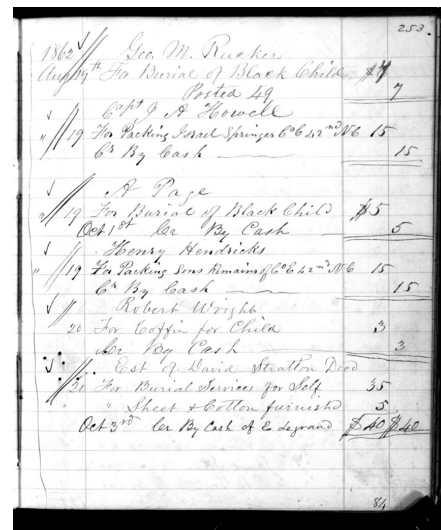 253.
1862 Geo. M. Rucker
Aug 19th For Burial of Black Child $7
Posted 49 7
Capt J A Howell
" 19 For Packing Israel Springer Co E 42nd N C 15
Cr By Cash 15
A Page
" 19 For Burial of Black Child $5
Oct 1st Cr By Cash 5
Henry Hendricks
" 19 For Packing Sons Remains of Co E 42nd N C 15
Cr By Cash 15
Robert Wright
20 For Coffin for Child 3
Cr By Cash 3
Est of David Stratton Decd
20 For Burial Services for Self 35
" Sheet & Cotton furnished 5
Oct 3rd Cr By Cash of Eo Legrand $40 $40
84